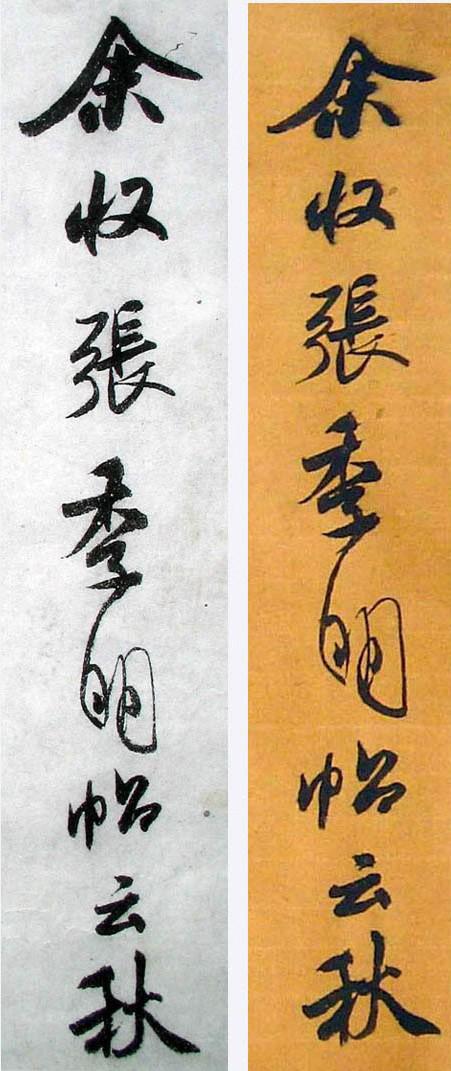 余收張季明帖云秋
余收張季明帖云秋